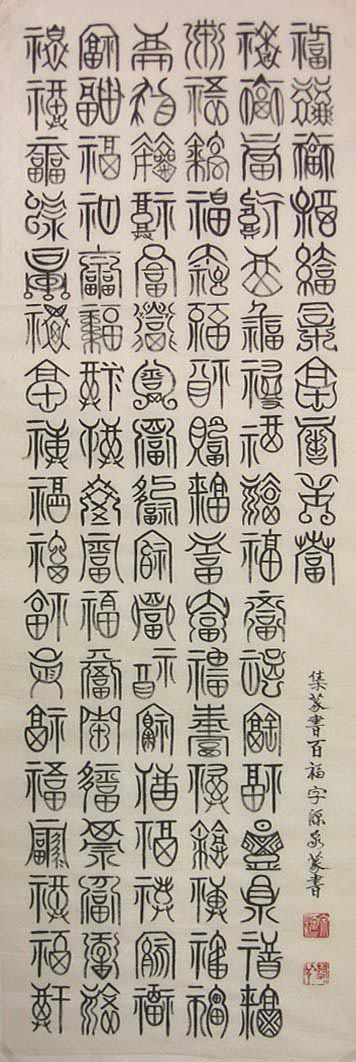 福福福福福福福福福福
福福福福福福福福福福福福福福福福福福
福福福福福福福福福福福福福福福福福福
福福福福福福福福福福福福福福福福福福
福福福福福福福福福福福福福福福福福福
福福福福福福福福福福福福福福福福福福
集篆書百福字源泉篆書